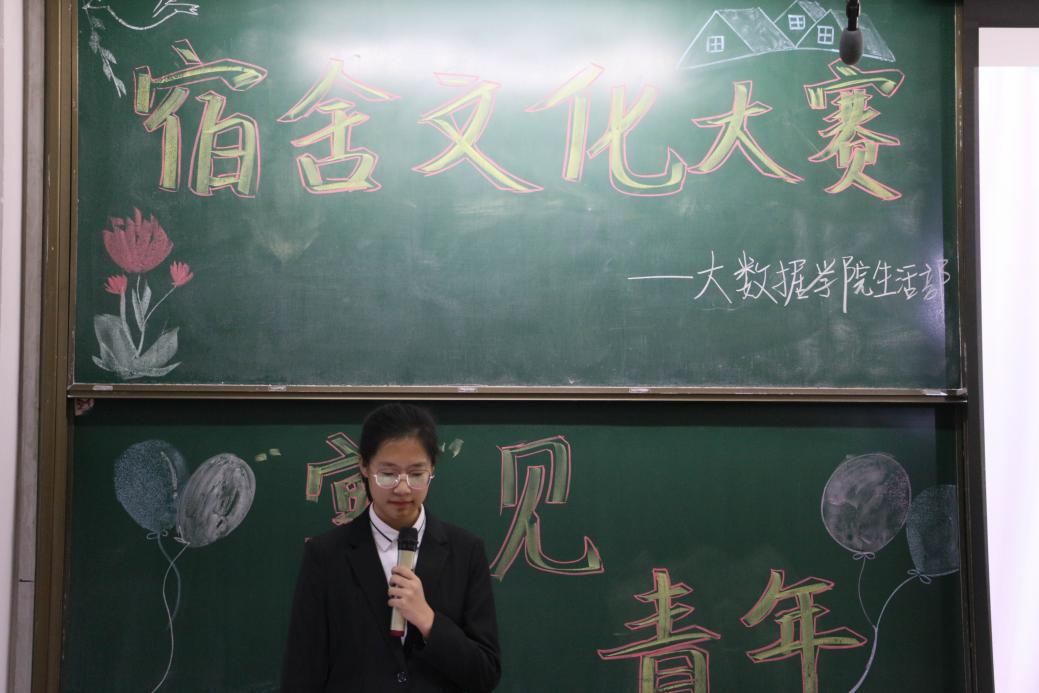 宿舍文化大赛
——大数据学院生活部
见
青年